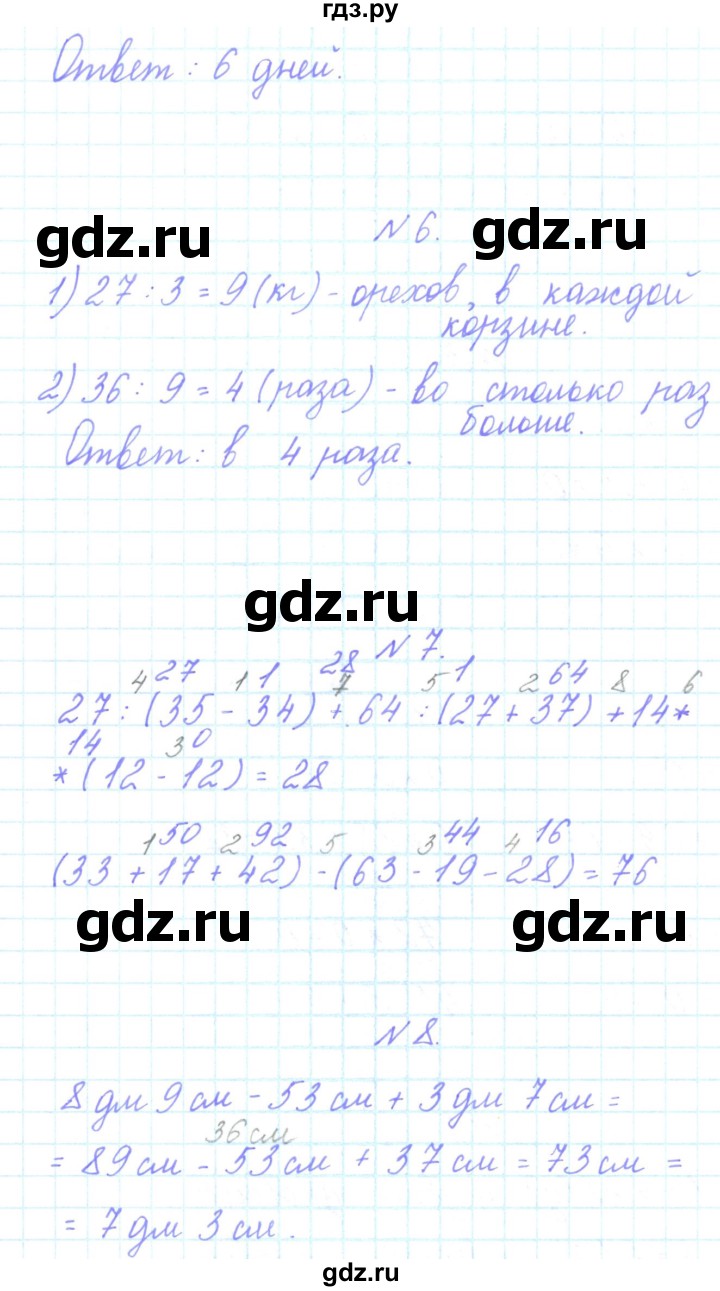 гдз.ру
Ответ: 6 дней.
gdz.ru
№ 6.
gdz.ru
1) 27 : 3 = 9 (кг) - орехов, в каждой
корзине.
2) 36 : 9 = 4 (раза) - во столько раз
больше.
Ответ: в 4 раза.
gdz.ru
№ 7.
4 27 1 1 28 7 5 1 2 64 8 6
27 : (35 - 34) + 64 : (27 + 37) + 14*
14 3 0
* (12 - 12) = 28
1 50 2 92 5 3 44 4 16
(33 + 17 + 42) - (63 - 19 - 28) = 76
gdz.ru
gdz.ru
№ 8.
8 дм 9 см - 53 см + 3 дм 7 см =
36 см
= 89 см - 53 см + 37 см = 73 см =
= 7 дм 3 см.
gdz.ru